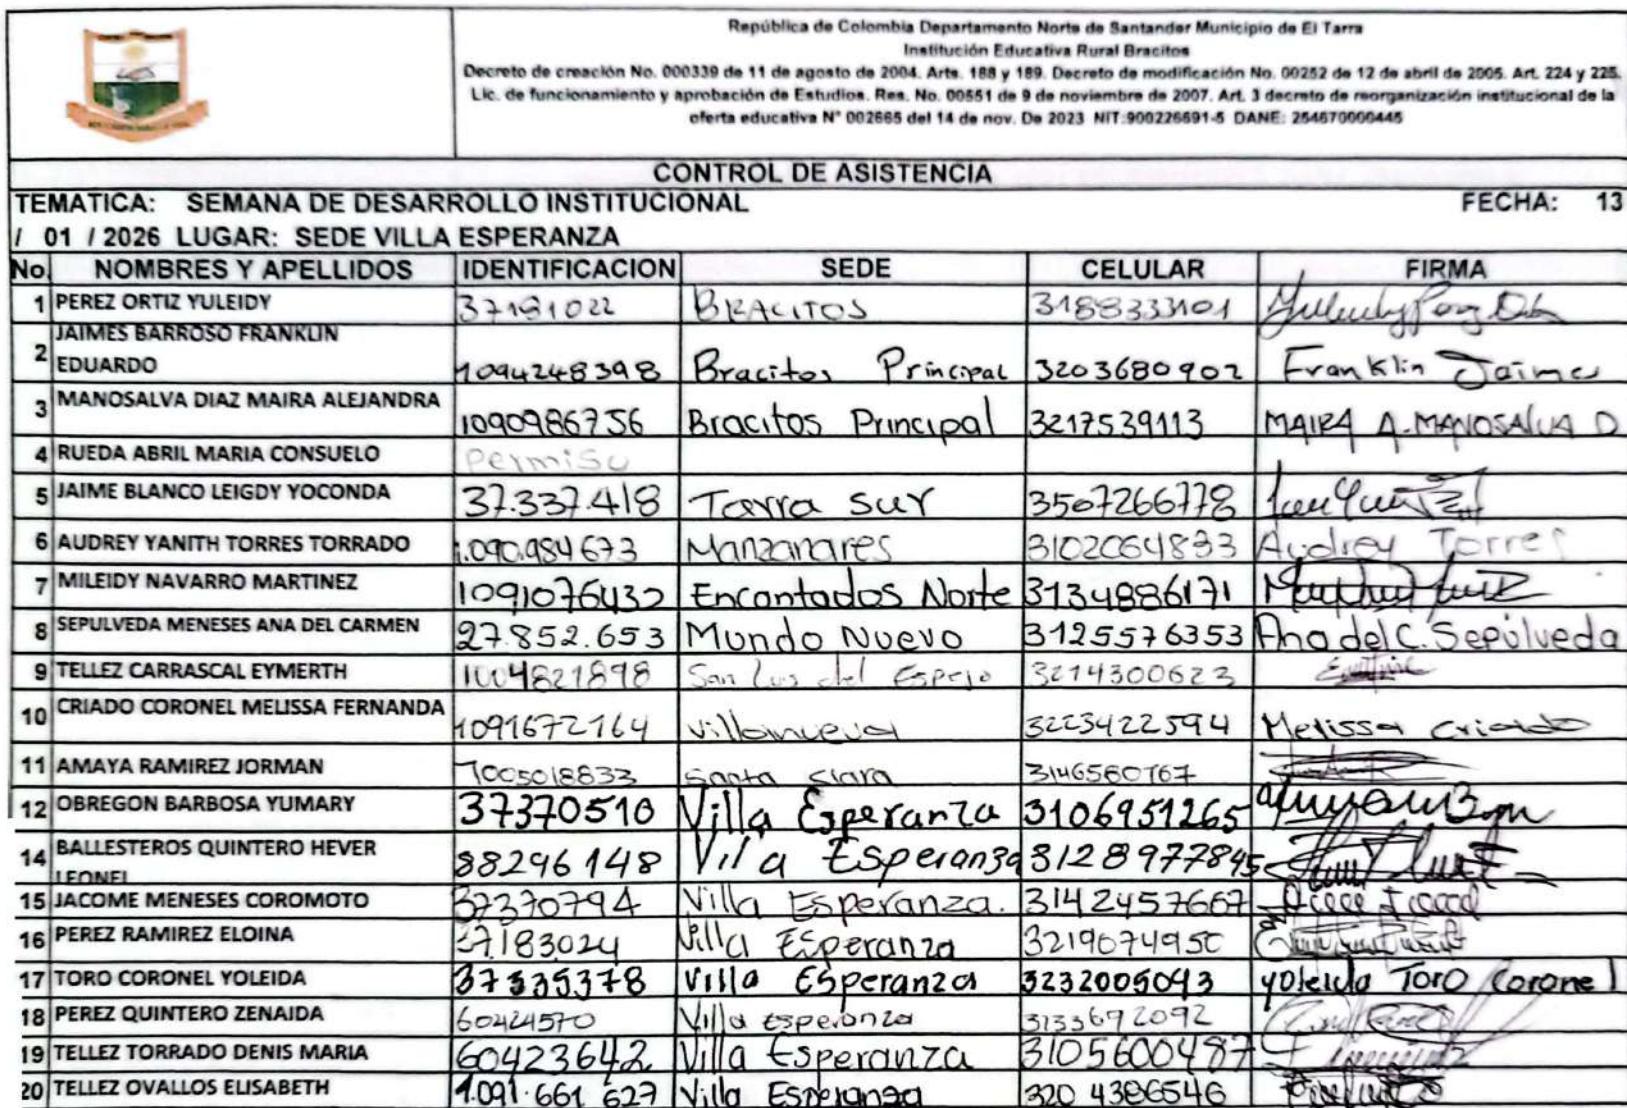 República de Colombia Departamento Norte de Santander Municipio de El Tarra
Institución Educativa Rural Bracitos
Decreto de creación No. 000339 de 11 de agosto de 2004. Arts. 188 y 189. Decreto de modificación No. 00252 de 12 de abril de 2005. Art. 224 y 225.
Lic. de funcionamiento y aprobación de Estudios. Res. No. 00551 de 9 de noviembre de 2007. Art. 3 decreto de reorganización institucional de la
oferta educativa N° 002665 del 14 de nov. De 2023 NIT:900226691-5 DANE: 254670000445
CONTROL DE ASISTENCIA
TEMATICA: SEMANA DE DESARROLLO INSTITUCIONAL FECHA: 13
/ 01 / 2026 LUGAR: SEDE VILLA ESPERANZA
No. NOMBRES Y APELLIDOS IDENTIFICACION SEDE CELULAR FIRMA
1 PEREZ ORTIZ YULEIDY 37181022 BRACITOS 3188333101
2 JAIMES BARROSO FRANKLIN
EDUARDO 1094248398 Bracitos Principal 3203680902 Franklin Jaimes
3 MANOSALVA DIAZ MAIRA ALEJANDRA 1090986756 Bracitos Principal 3217539113 MAIRA A. MANOSALVA D
4 RUEDA ABRIL MARIA CONSUELO Permiso
5 JAIME BLANCO LEIGDY YOCONDA 37.337.418 Tarra sur 3507266778
6 AUDREY YANITH TORRES TORRADO 1.090.984673 Manzanares 3102064833 Audrey Torres
7 MILEIDY NAVARRO MARTINEZ 1091076432 Encantados Norte 3134886171
8 SEPULVEDA MENESES ANA DEL CARMEN 27.852.653 Mundo Nuevo 3125576353 Ana del C. Sepúlveda
9 TELLEZ CARRASCAL EYMERTH 1004821898 San Luis del Espejo 3214300623
10 CRIADO CORONEL MELISSA FERNANDA 1091672164 Villanueva 3223422594 Melissa Criado
11 AMAYA RAMIREZ JORMAN 1005018833 Santa Clara 3146580767
12 OBREGON BARBOSA YUMARY 37370510 Villa Esperanza 3106951265
14 BALLESTEROS QUINTERO HEVER
LEONEL 88296148 Villa Esperanza 3128977845
15 JACOME MENESES COROMOTO 37370794 Villa Esperanza. 3142457667
16 PEREZ RAMIREZ ELOINA 37.183024 Villa Esperanza 3219674950
17 TORO CORONEL YOLEIDA 37335378 Villa Esperanza 3232005043 Yoleida Toro Coronel
18 PEREZ QUINTERO ZENAIDA 60424570 Villa esperanza 3133692092
19 TELLEZ TORRADO DENIS MARIA 60423642 Villa Esperanza 3105600487
20 TELLEZ OVALLOS ELISABETH 1.091.661 627 Villa Esperanza 320 4386546